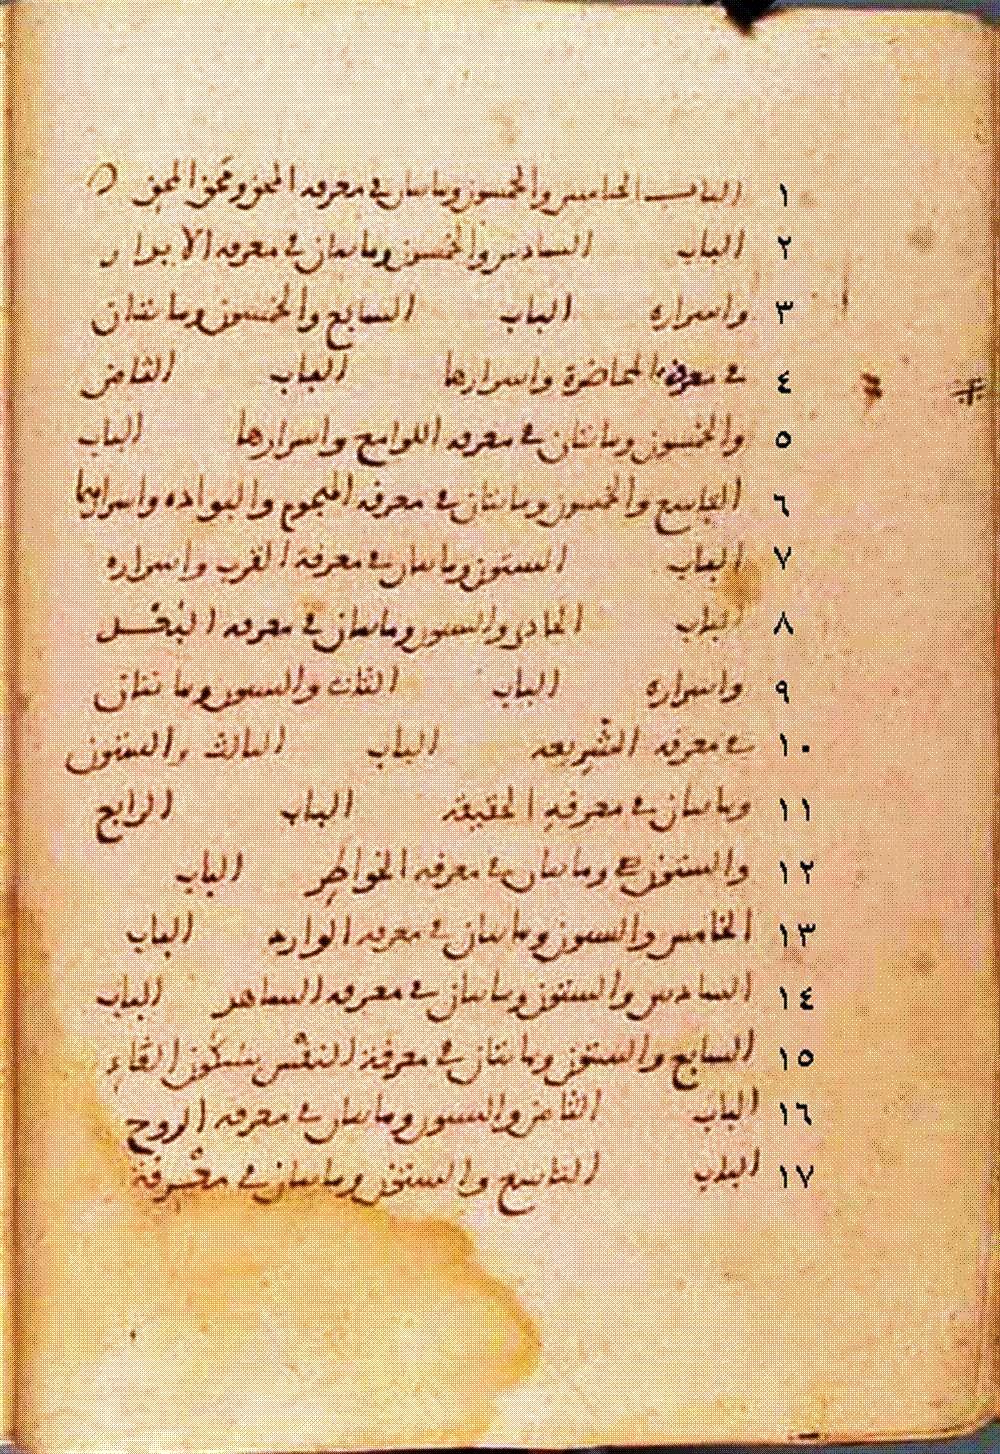 ١ الباب الخامس والخمسون وماىتان في معرفه المحق ومحق المحق
٢ الباب السادس والخمسون وماىتان في معرفه الابدار
٣ واسراره الباب السابع والخمسون ومائتان
٤ في معرفة المحاضرة واسرارها الباب الثامن
٥ والخمسون ومائتان في معرفه اللوامع واسرارها الباب
٦ التاسع والخمسون ومائتان في معرفه الهجوم والبواده واسرارهما
٧ الباب الستون وماىتان في معرفة القرب واسراره
٨ الباب الحادي والستون وماىتان في معرفه البُعْد
٩ واسراره الباب الثانى والستون ومائتان
١٠ في معرفه الشريعه الباب الثالث والستون
١١ وماىتان في معرفه الحقيقة الباب الرابع
١٢ والستون وماىتان في معرفه الخواطر الباب
١٣ الخامس والستون وماىتان في معرفه الوارد الباب
١٤ السادس والستون وماىتان في معرفه الشاهد الباب
١٥ السابع والستون ومائتان في معرفة النفْس بسكون الفاء
١٦ الباب الثامن والستون وماىتان في معرفه الروح
١٧ الباب التاسع والستون وماىتان في معرفة